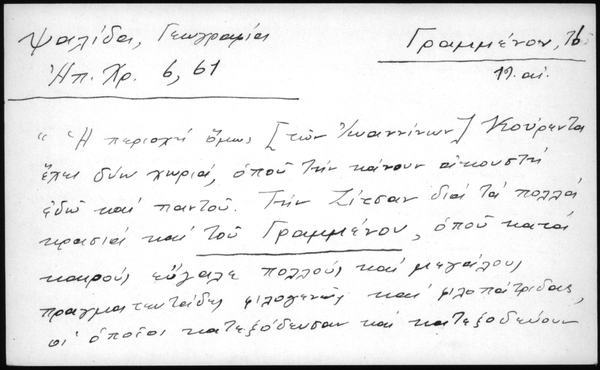 Ψαλίδα, Γεωγραφία
Γραμμένον, τό
Ἠπ. Χρ. 6, 61
19. αἰ.
"Ἡ περιοχή ὅμως [τῶν Ἰωαννίνων] Κούρεντα
ἔχει δύω χωριά, ὁποῦ τήν κάνουν ἀκουστή
ἐδῶ καί παντοῦ. Τήν Ζίτσαν διά τά πολλά
κρασιά καί τοῦ Γραμμένου, ὁποῦ κατά
καιρούς εὔγαλε πολλούς καί μεγάλους
πραγματευτάδες φιλογενῶς καί φιλοπάτριδας,
οἱ ὁποῖοι κατεξόδευσαν καί κατεξοδεύουν